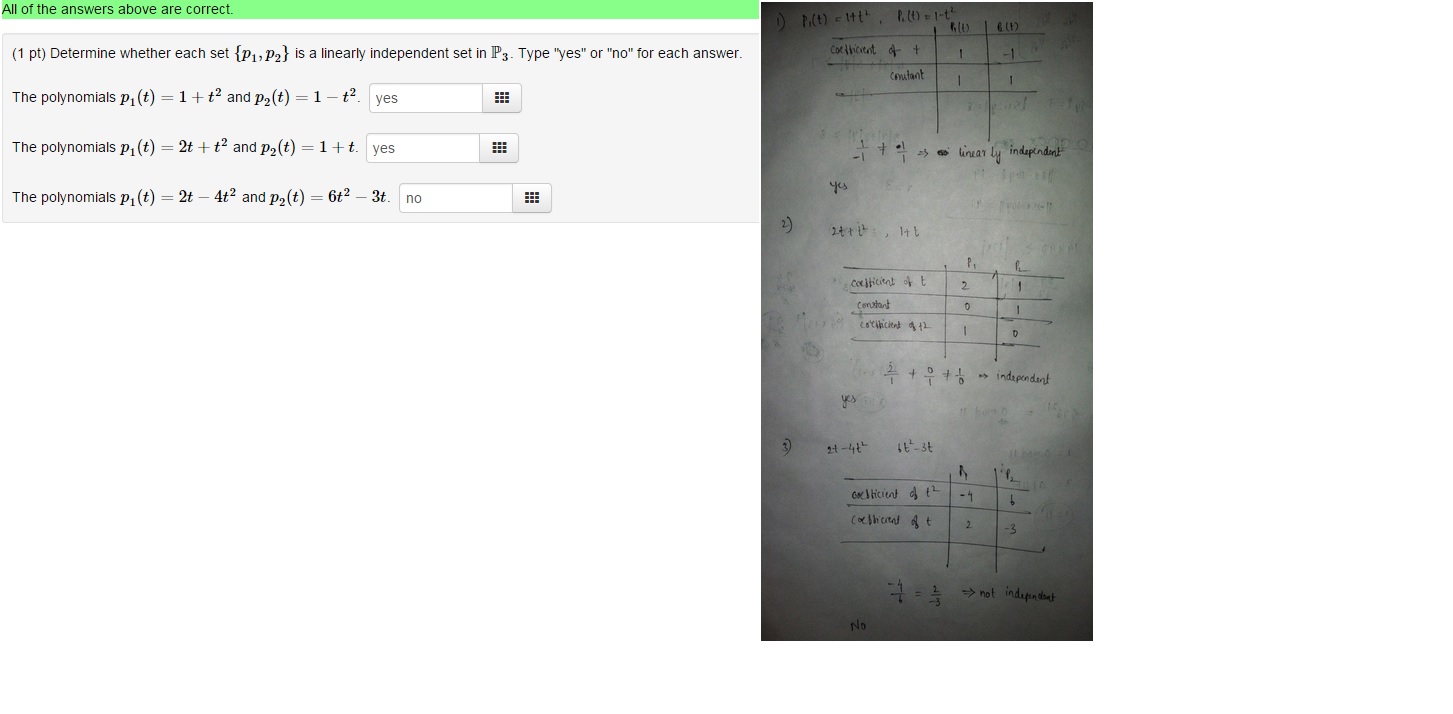 All of the answers above are correct.
(1 pt) Determine whether each set {p₁, p₂} is a linearly independent set in ℙ₃. Type "yes" or "no" for each answer.
The polynomials p₁(t) = 1 + t² and p₂(t) = 1 − t². yes
The polynomials p₁(t) = 2t + t² and p₂(t) = 1 + t. yes
The polynomials p₁(t) = 2t − 4t² and p₂(t) = 6t² − 3t. no
1) P₁(t) = 1+t² , P₂(t) = 1-t²
P₁(t) P₂(t)
coefficient of t 1 -1
constant 1 1
1/-1 ≠ 1/1 ⇒ linearly independent
yes
2) 2t+t² , 1+t
P₁ P₂
coefficient of t 2 1
constant 0 1
coefficient of t2 1 0
2/1 ≠ 0/1 ≠ 1/0 ⇒ independent
yes
3) 2t-4t² 6t²-3t
P₁ P₂
coefficient of t² -4 6
coefficient of t 2 -3
-4/6 = 2/-3 ⇒ not independent
No